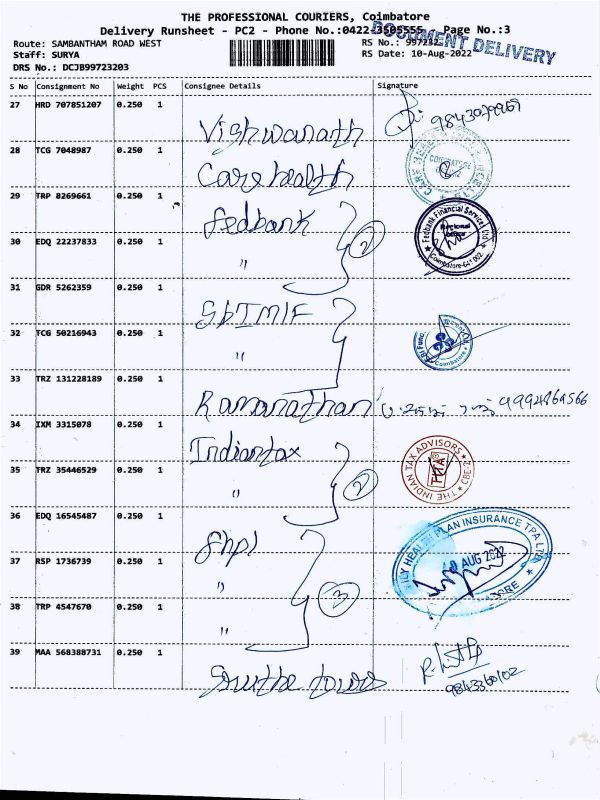 THE PROFESSIONAL COURIERS, Coimbatore
Delivery Runsheet - PC2 - Phone No.:0422-3505555 Page No.:3
DOCUMENT DELIVERY
Route: SAMBANTHAM ROAD WEST RS No.: 997232
Staff: SURYA RS Date: 10-Aug-2022
DRS No.: DCJB99723203
S No Consignment No Weight PCS Consignee Details Signature
27 HRD 707851207 0.250 1
Vishwanath
28 TCG 7048987 0.250 1
Care health
29 TRP 8269661 0.250 1
fedbank 2
Fedbank Financial Services Ltd
Regional Office
Coimbatore-641 002
30 EDQ 22237833 0.250 1
"
31 GDR 5262359 0.250 1
SbIMIF
32 TCG 50216943 0.250 1
"
Coimbatore
33 TRZ 131228189 0.250 1
Ramanathan
34 IXM 3315078 0.250 1
Indiantax 2
THE INDIAN TAX ADVISORS
CBE-2
TITA
35 TRZ 35446529 0.250 1
"
36 EDQ 16545487 0.250 1
Shpl 3
HEALTH PLAN INSURANCE TPA LTD
AUG 2022
37 RSP 1736739 0.250 1
"
38 TRP 4547670 0.250 1
"
39 MAA 568388731 0.250 1
9843360102